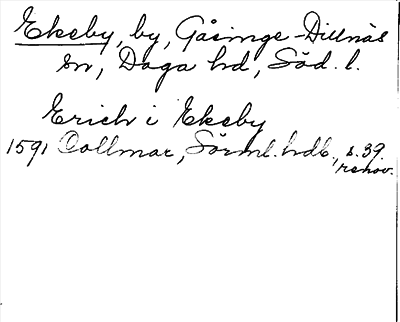 Ekeby, by, Gåsinge-Dillnäs
sn, Daga hd, Söd. l.
Erich i Ekeby
1591 Collmar, Sörml. hdl., s. 39.
renov.